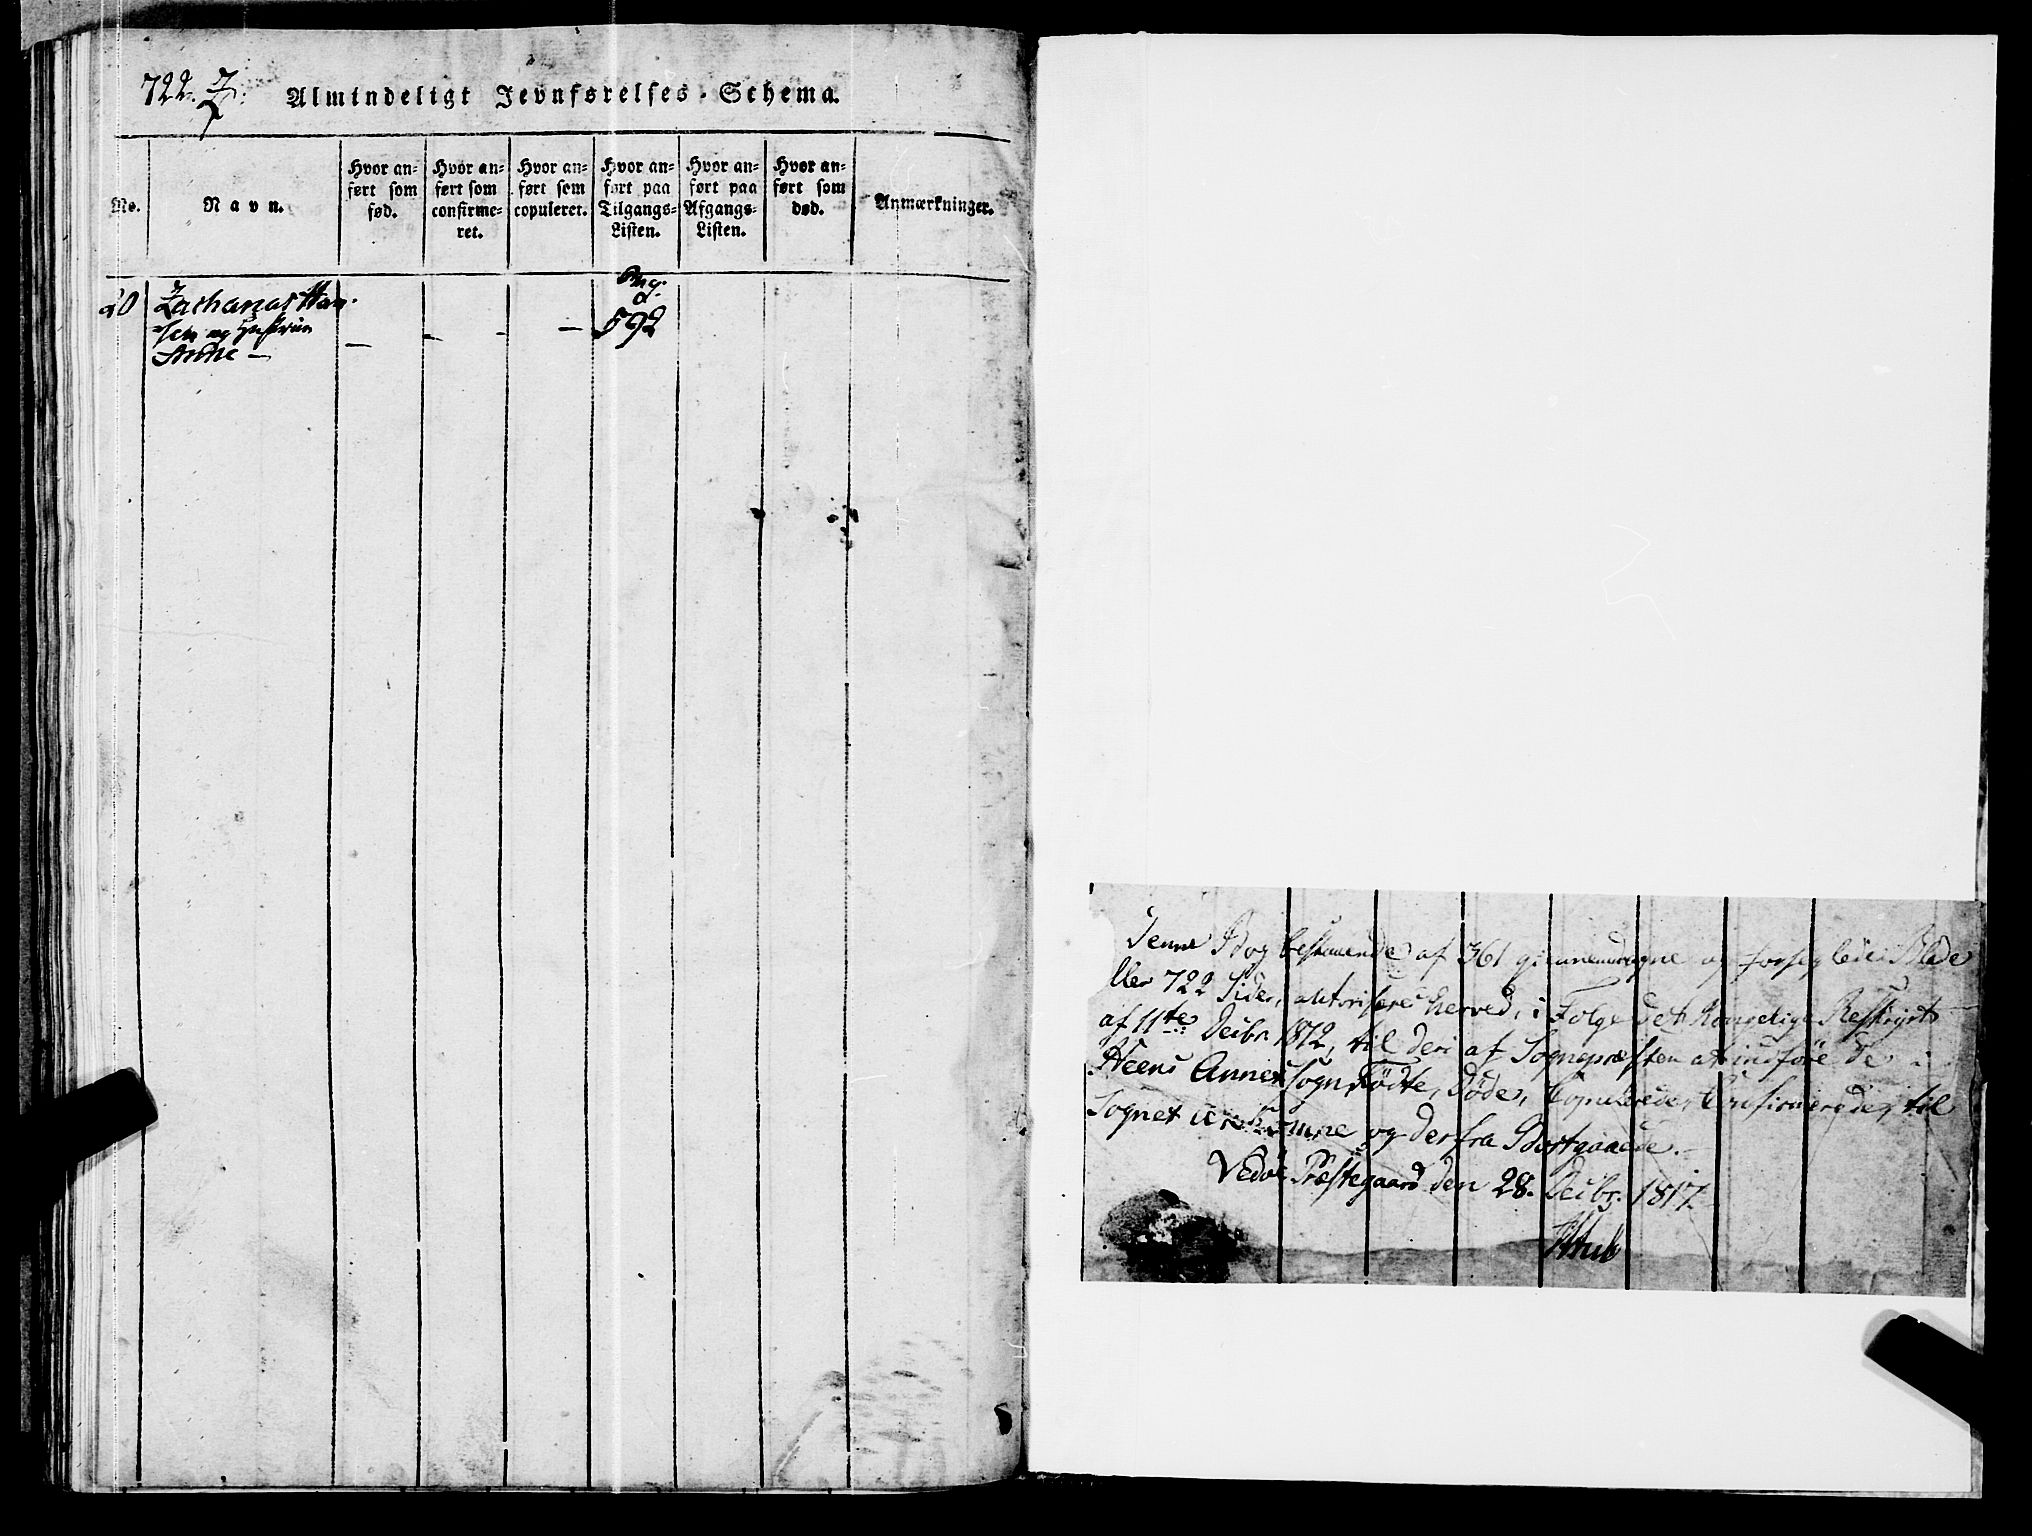 722. Z.
Almindeligt Jevnførelses-Schema.
No.
Navn.
Hvor an-
ført som
fød.
Hvor an-
ført som
confirme-
ret.
Hvor an-
ført som
copuleret.
Hvor an-
ført paa
Tilgangs-
Listen.
Hvor an-
ført paa
Afgangs-
Listen.
Hvor an-
ført som
død.
Anmærkninger.
Pag.
20 Zacharias Han-
sen og Hustrue
Anne — — — — — 592
Denne Bog bestaaende af 361 giennemdragne og forseglede Blade
eller 722 Sider, autoriseres herved, i Følge det Kongelige Reskript
af 11te Decbr. 1812, til deri af Sognepræsten at indføre de i
Heens Annexsogn Fødte, Døde, Copulerede, Confirmerede, til
Sognet ankomne og derfra Bortgaaede.
Vedøe Præstegaard den 28. Decbr. 1817.